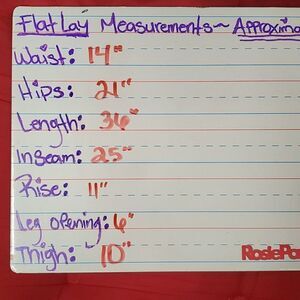 Flat Lay Measurements~ Approxima
Waist: 14"
Hips: 21"
Length: 36"
Inseam: 25"
Rise: 11"
Leg opening: 6"
Thigh: 10"
RosiePo